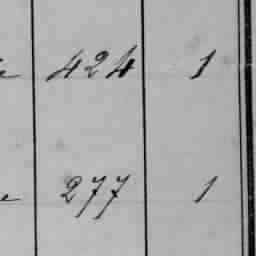 424 1
277 1